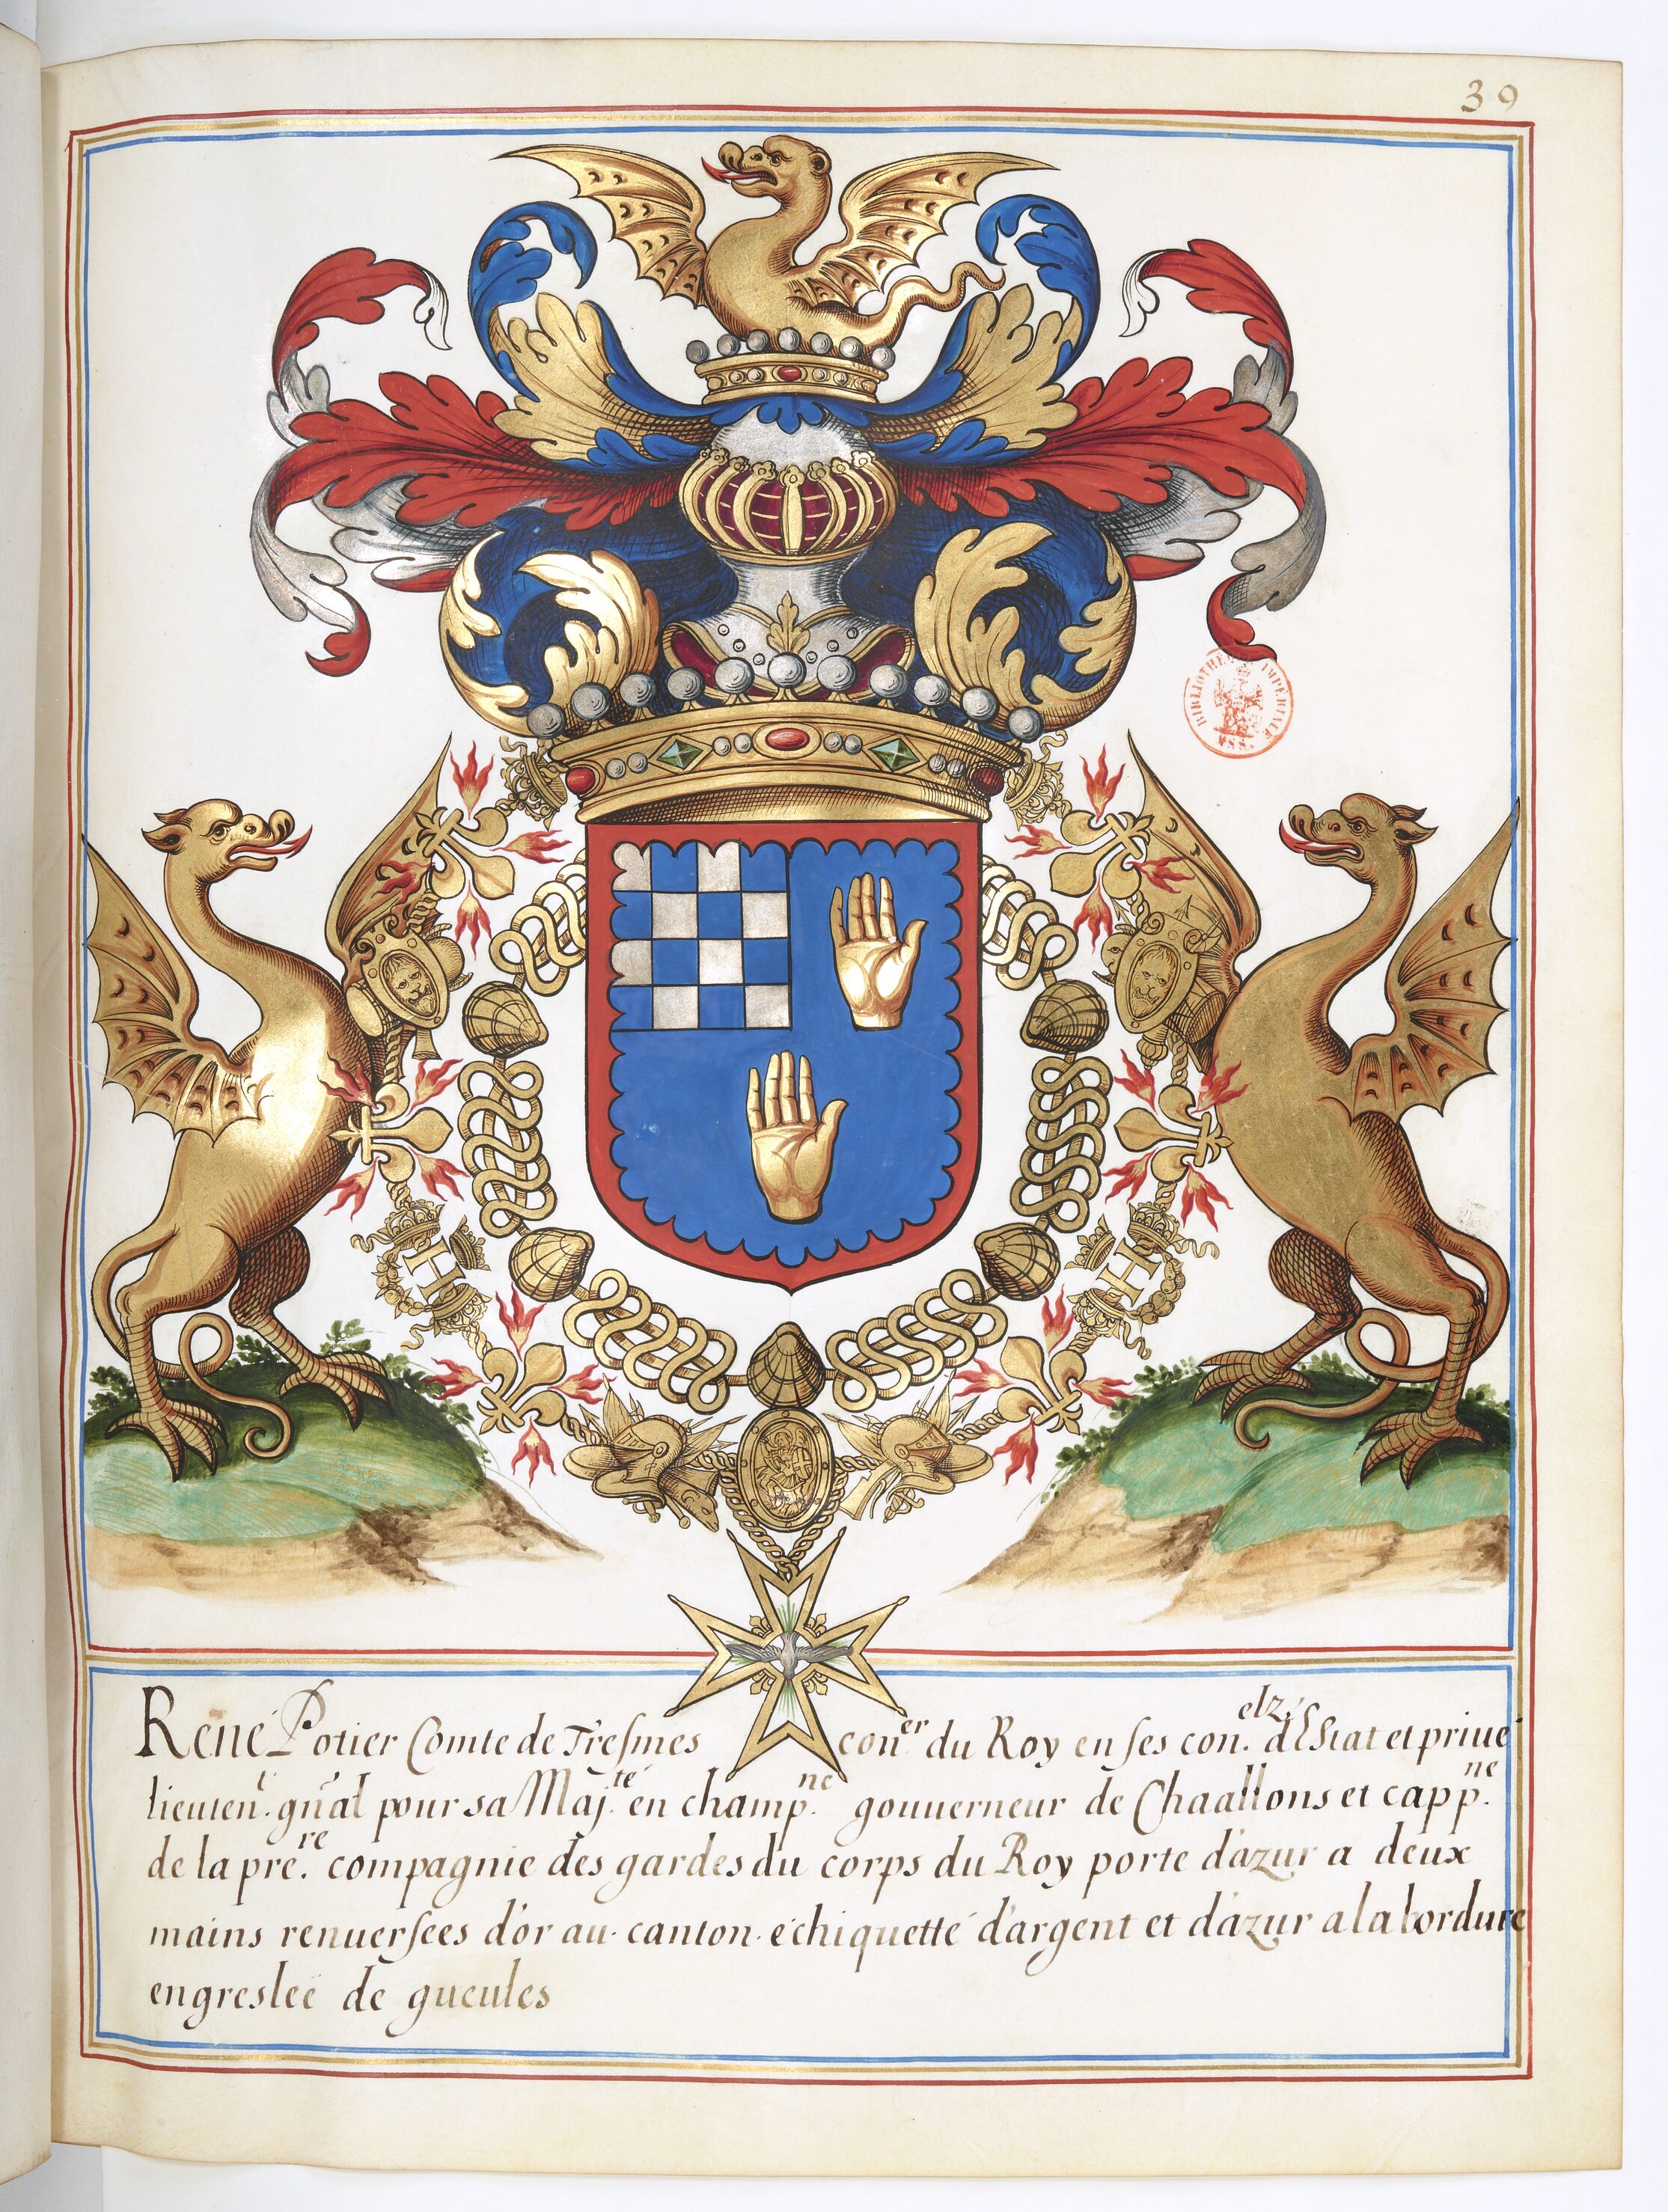 39
BIBLIOTHEQUE IMPERIALE
MSS.
H
H
René Potier Comte de Tresmes con.er du Roy en ses con.elz d'Estat et priué
lieuten.t gñal pour sa Maj.té en champ.ne gouuerneur de Chaallons et capp.ne
de la pre.re compagnie des gardes du corps du Roy porte d'azur a deux
mains renuersees d'or au canton échiquetté d'argent et d'azur a la bordure
engreslee de gueules